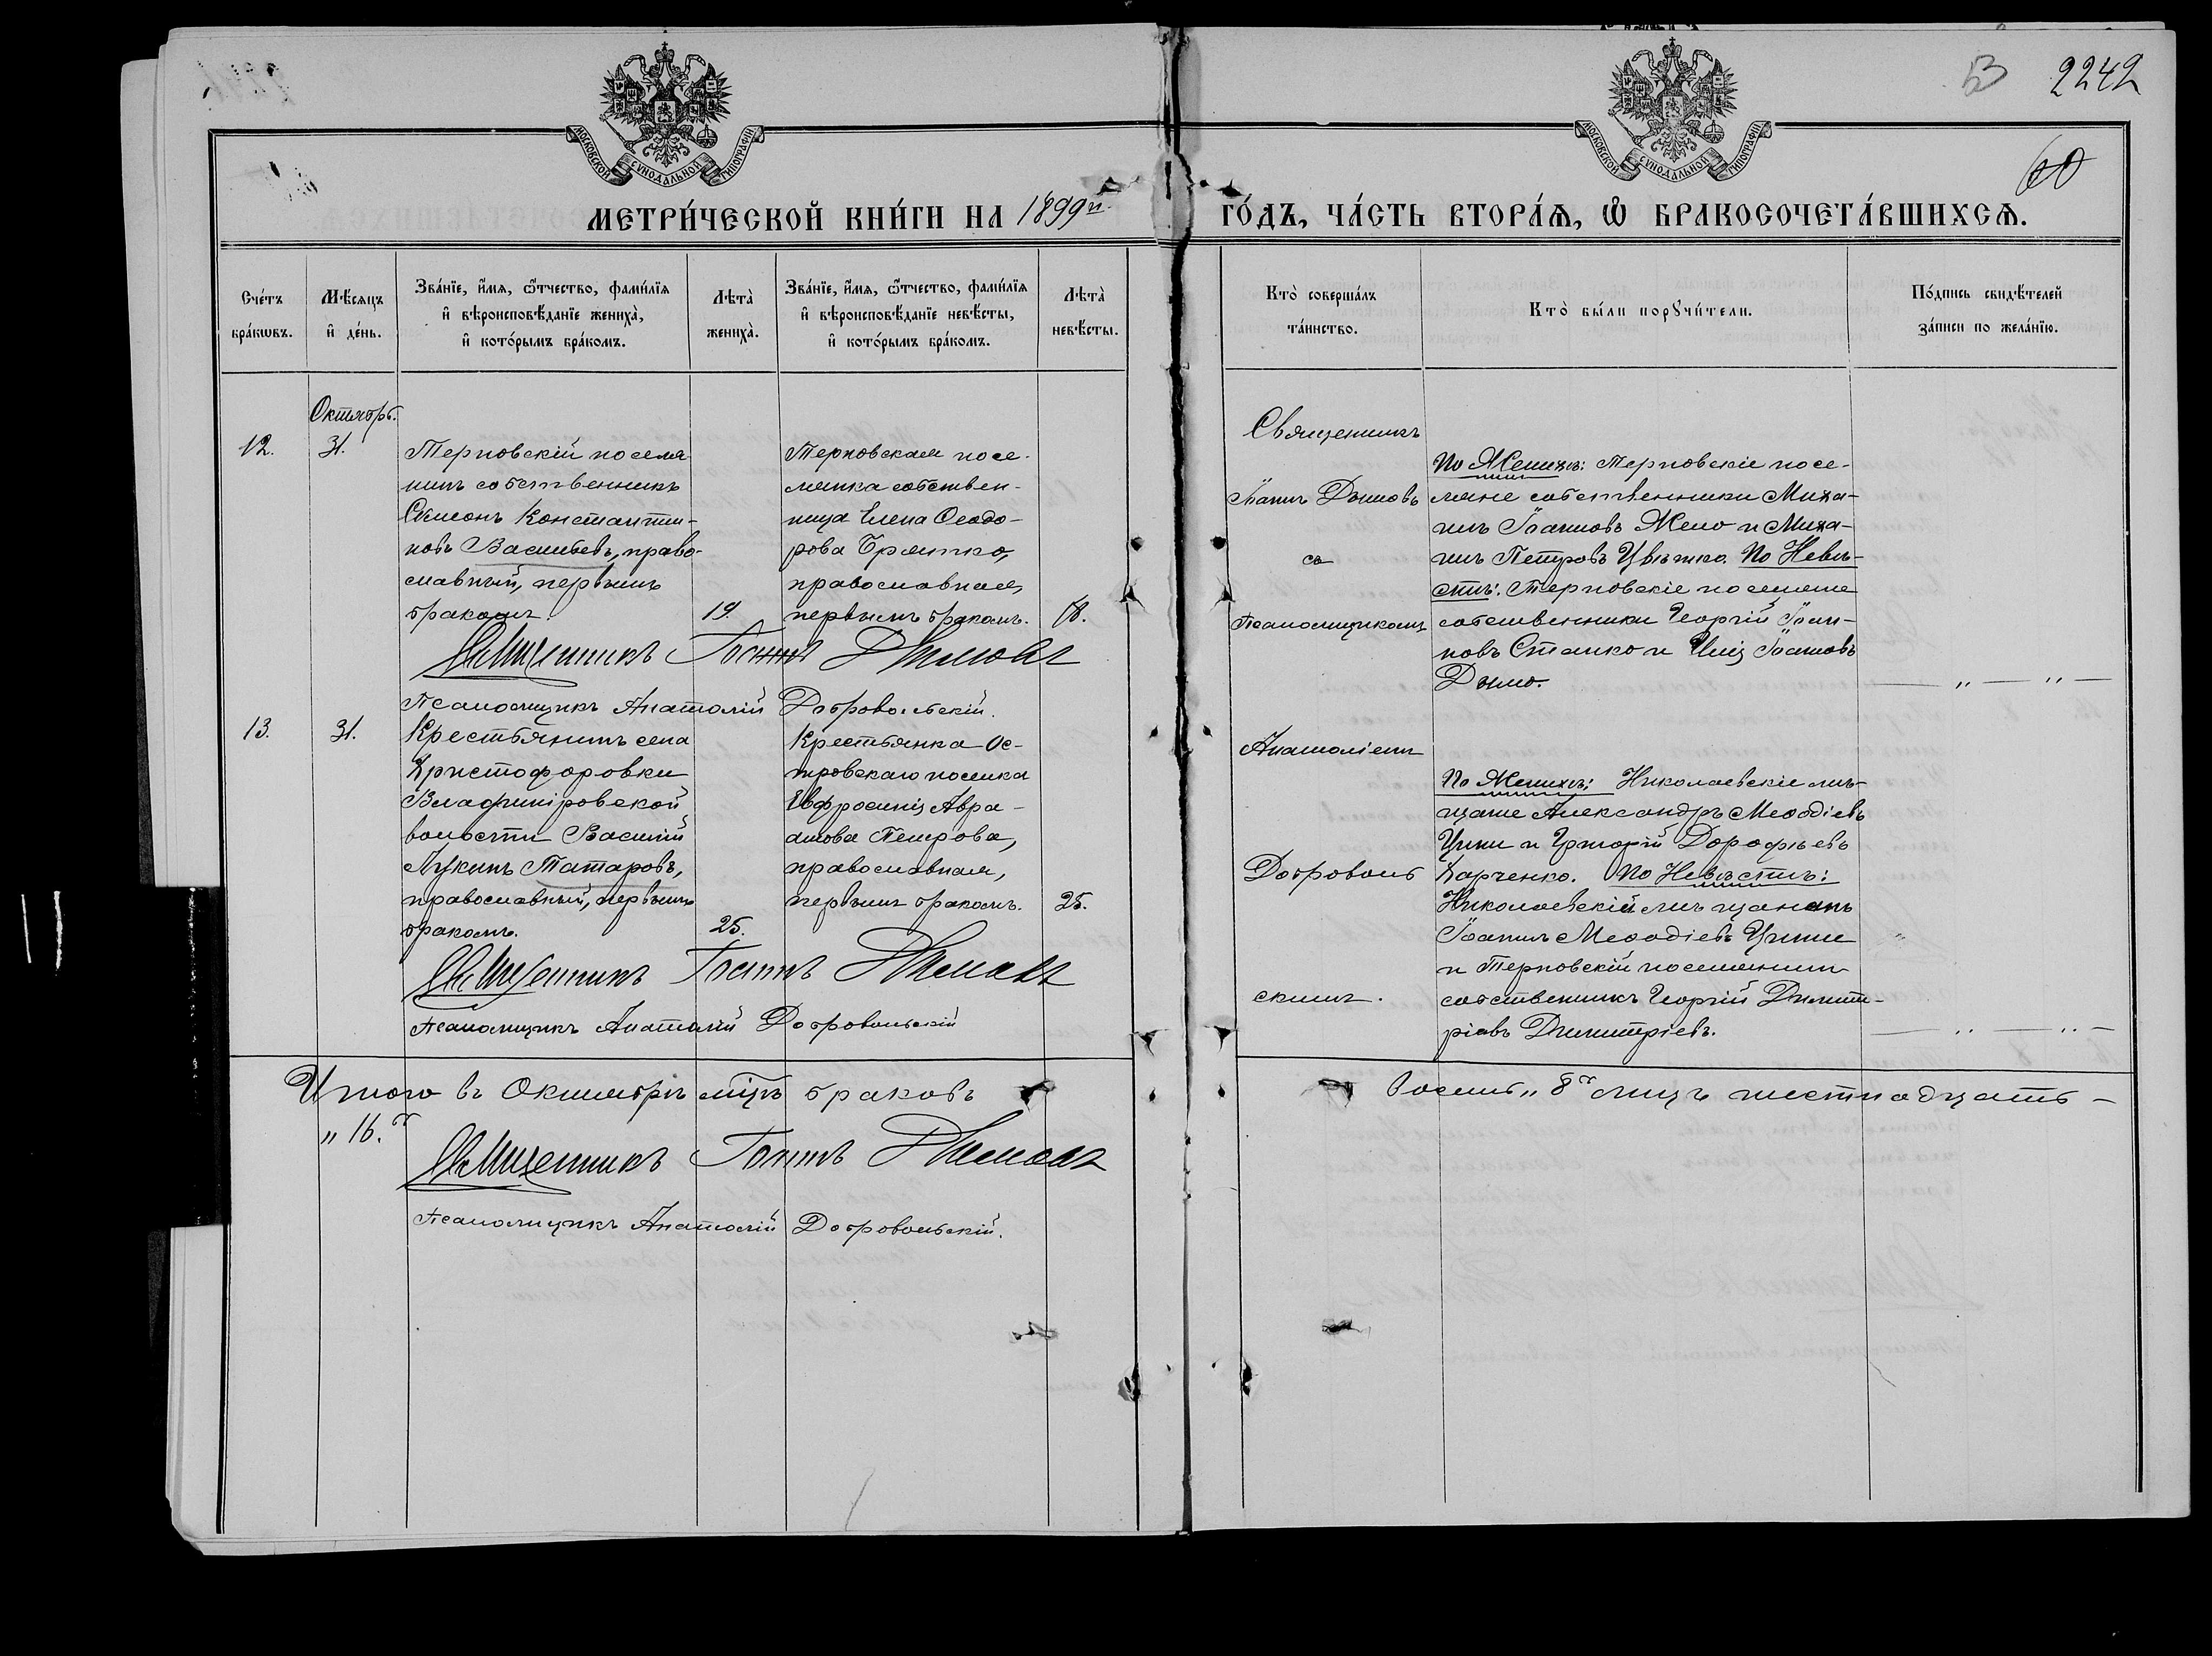 53 2242
60
МОСКОВСКОЙ СѴНОДАЛЬНОЙ ТИПОГРАФІИ
МОСКОВСКОЙ СѴНОДАЛЬНОЙ ТИПОГРАФІИ
МЕТРИ́ЧЕСКОЙ КНИ́ГИ НА 1899й ГО́ДЪ, ЧА́СТЬ ВТОРА́Ѧ, Ѡ҆ БРАКОСОЧЕТА́ВШИХСѦ.
Сче́тъ
бра́кѡвъ.
Мѣ́сѧцъ
и҆ де́нь.
Зва́нїе, и҆́мѧ, ѻ҆́тчество, фами́лїѧ
и҆ вѣроисповѣ́данїе жениха̀,
и҆ кото́рымъ бра́комъ.
Лѣта̀
жениха̀.
Зва́нїе, и҆́мѧ, ѻ҆́тчество, фами́лїѧ
и҆ вѣроисповѣ́данїе невѣ́сты,
и҆ кото́рымъ бра́комъ.
Лѣта̀
невѣ́сты.
Кто̀ соверша́лъ
та́инство.
Кто̀ бы́ли порꙋчи́тели.
По́дпись свидѣ́телей
за́писи по жела́нїю.
Октябрь.
12.
31.
Терновскій поселя-
нинъ собственникъ
Симеонъ Константи-
новъ Васильевъ, право-
славный, первымъ
бракомъ.
19.
Терновская посе-
лянка собствен-
ница Елена Ѳеодо-
рова Братко,
православная,
первымъ бракомъ.
18.
Священникъ
Іоаннъ Дымовъ
съ
Псаломщикомъ
По Женихѣ: Терновскіе посе-
ляне собственники Миха-
илъ Іоанновъ Жено и Миха-
илъ Петровъ Цвѣтко. По Невѣ-
стѣ: Терновскіе поселяне
собственники Георгій Іоан-
новъ Станко и Илія Іоанновъ
Дымо.
— „ — „ —
Священникъ Іоаннъ Дымовъ
Псаломщикъ Анатолій Добровольскій.
13.
31.
Крестьянинъ села
Христофоровки
Владиміровской
волости Василій
Лукинъ Татаровъ,
православный, первымъ
бракомъ.
25.
Крестьянка Ос-
тровскаго поселка
Евфросинія Авра-
амова Петрова,
православная,
первымъ бракомъ.
25.
Анатоліемъ
Доброволь
скимъ.
По Женихѣ: Николаевскіе мѣ-
щане Александръ Меѳодіевъ
и Григорій Дорофѣевъ
Харченко. По Невѣстѣ:
Николаевскій мѣщанинъ
Іоаннъ Меѳодіевъ
и Терновскій поселянинъ
собственникъ Георгій Димит-
ріевъ Димитріевъ.
— „ — „ —
Священникъ Іоаннъ Дымовъ
Псаломщикъ Анатолій Добровольскій
Итого въ Октябрѣ мцѣ браковъ восемь „8" лицъ шестнадцать —
„16."
Священникъ Іоаннъ Дымовъ
Псаломщикъ Анатолій Добровольскій.